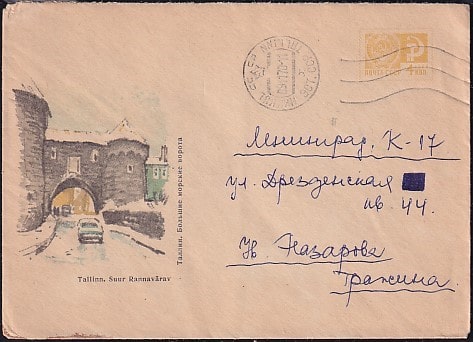 ПОЧТА СССР
4 КОП.
TALLINN
Ленинград, К-17
ул. Дрезденская
кв. 44.
Назарова
Tallinn. Suur Rannavärav
Таллин. Большие морские ворота